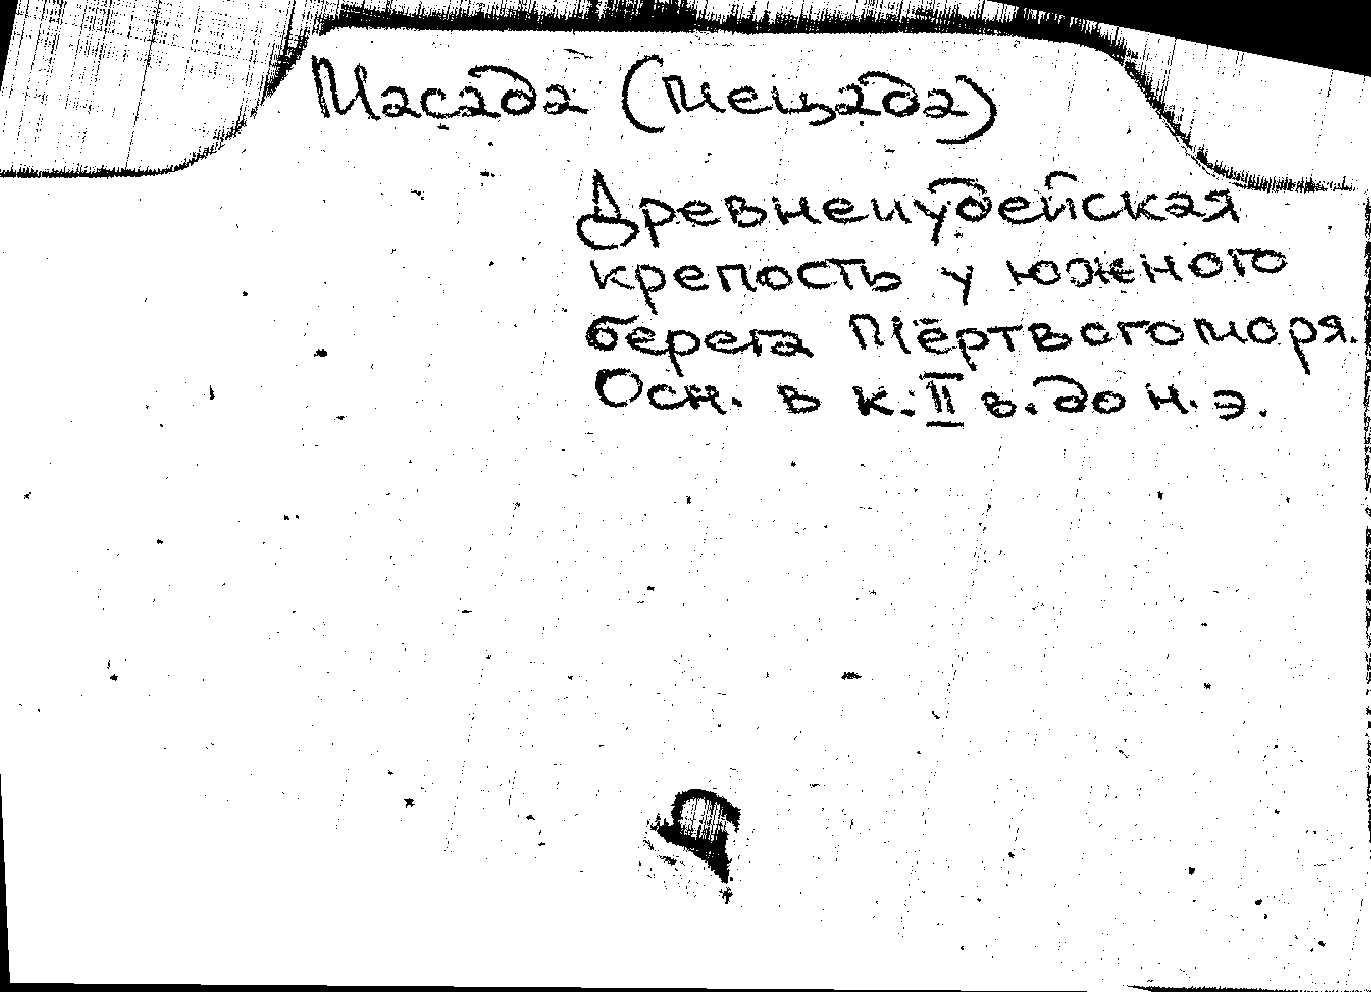 Масада (Мецада)
Древнеиудейская
крепость у южного
берега Мёртвого моря.
Осн. в к. II в. до н. э.